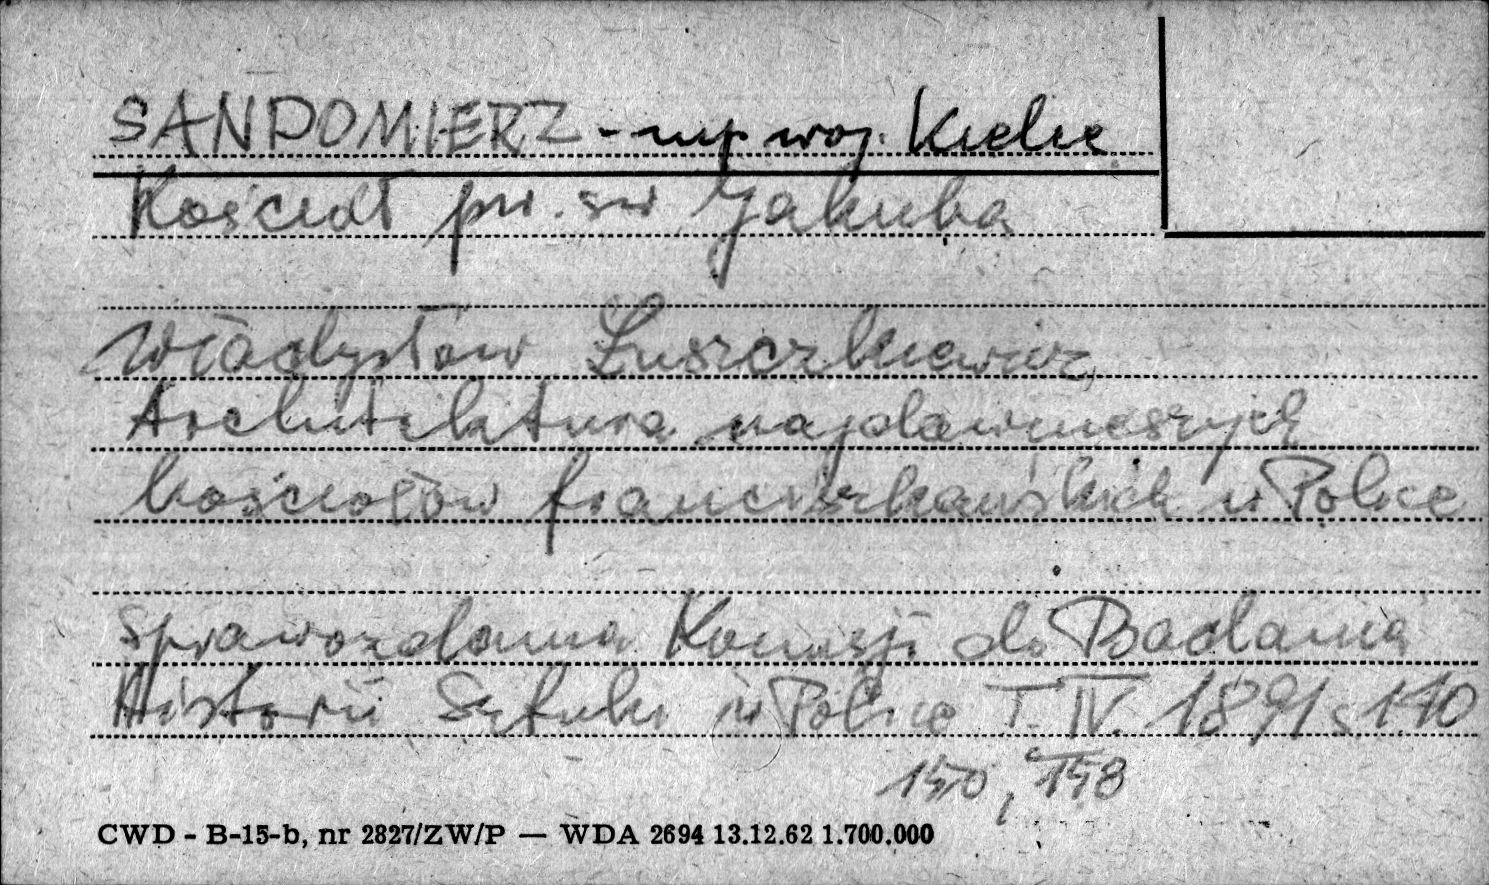 SANDOMIERZ - mp woj. Kielce
Kościół pw. św Jakuba
Władysław Łuszczkiewicz,
Architektura najdawniejszych
kościołów franciszkańskich w Polsce
Sprawozdania Komisji do Badania
Historii Sztuki w Polsce T. IV. 1891 s 140
150, 158
CWD - B-15-b, nr 2827/ZW/P — WDA 2694 13.12.62 1.700.000